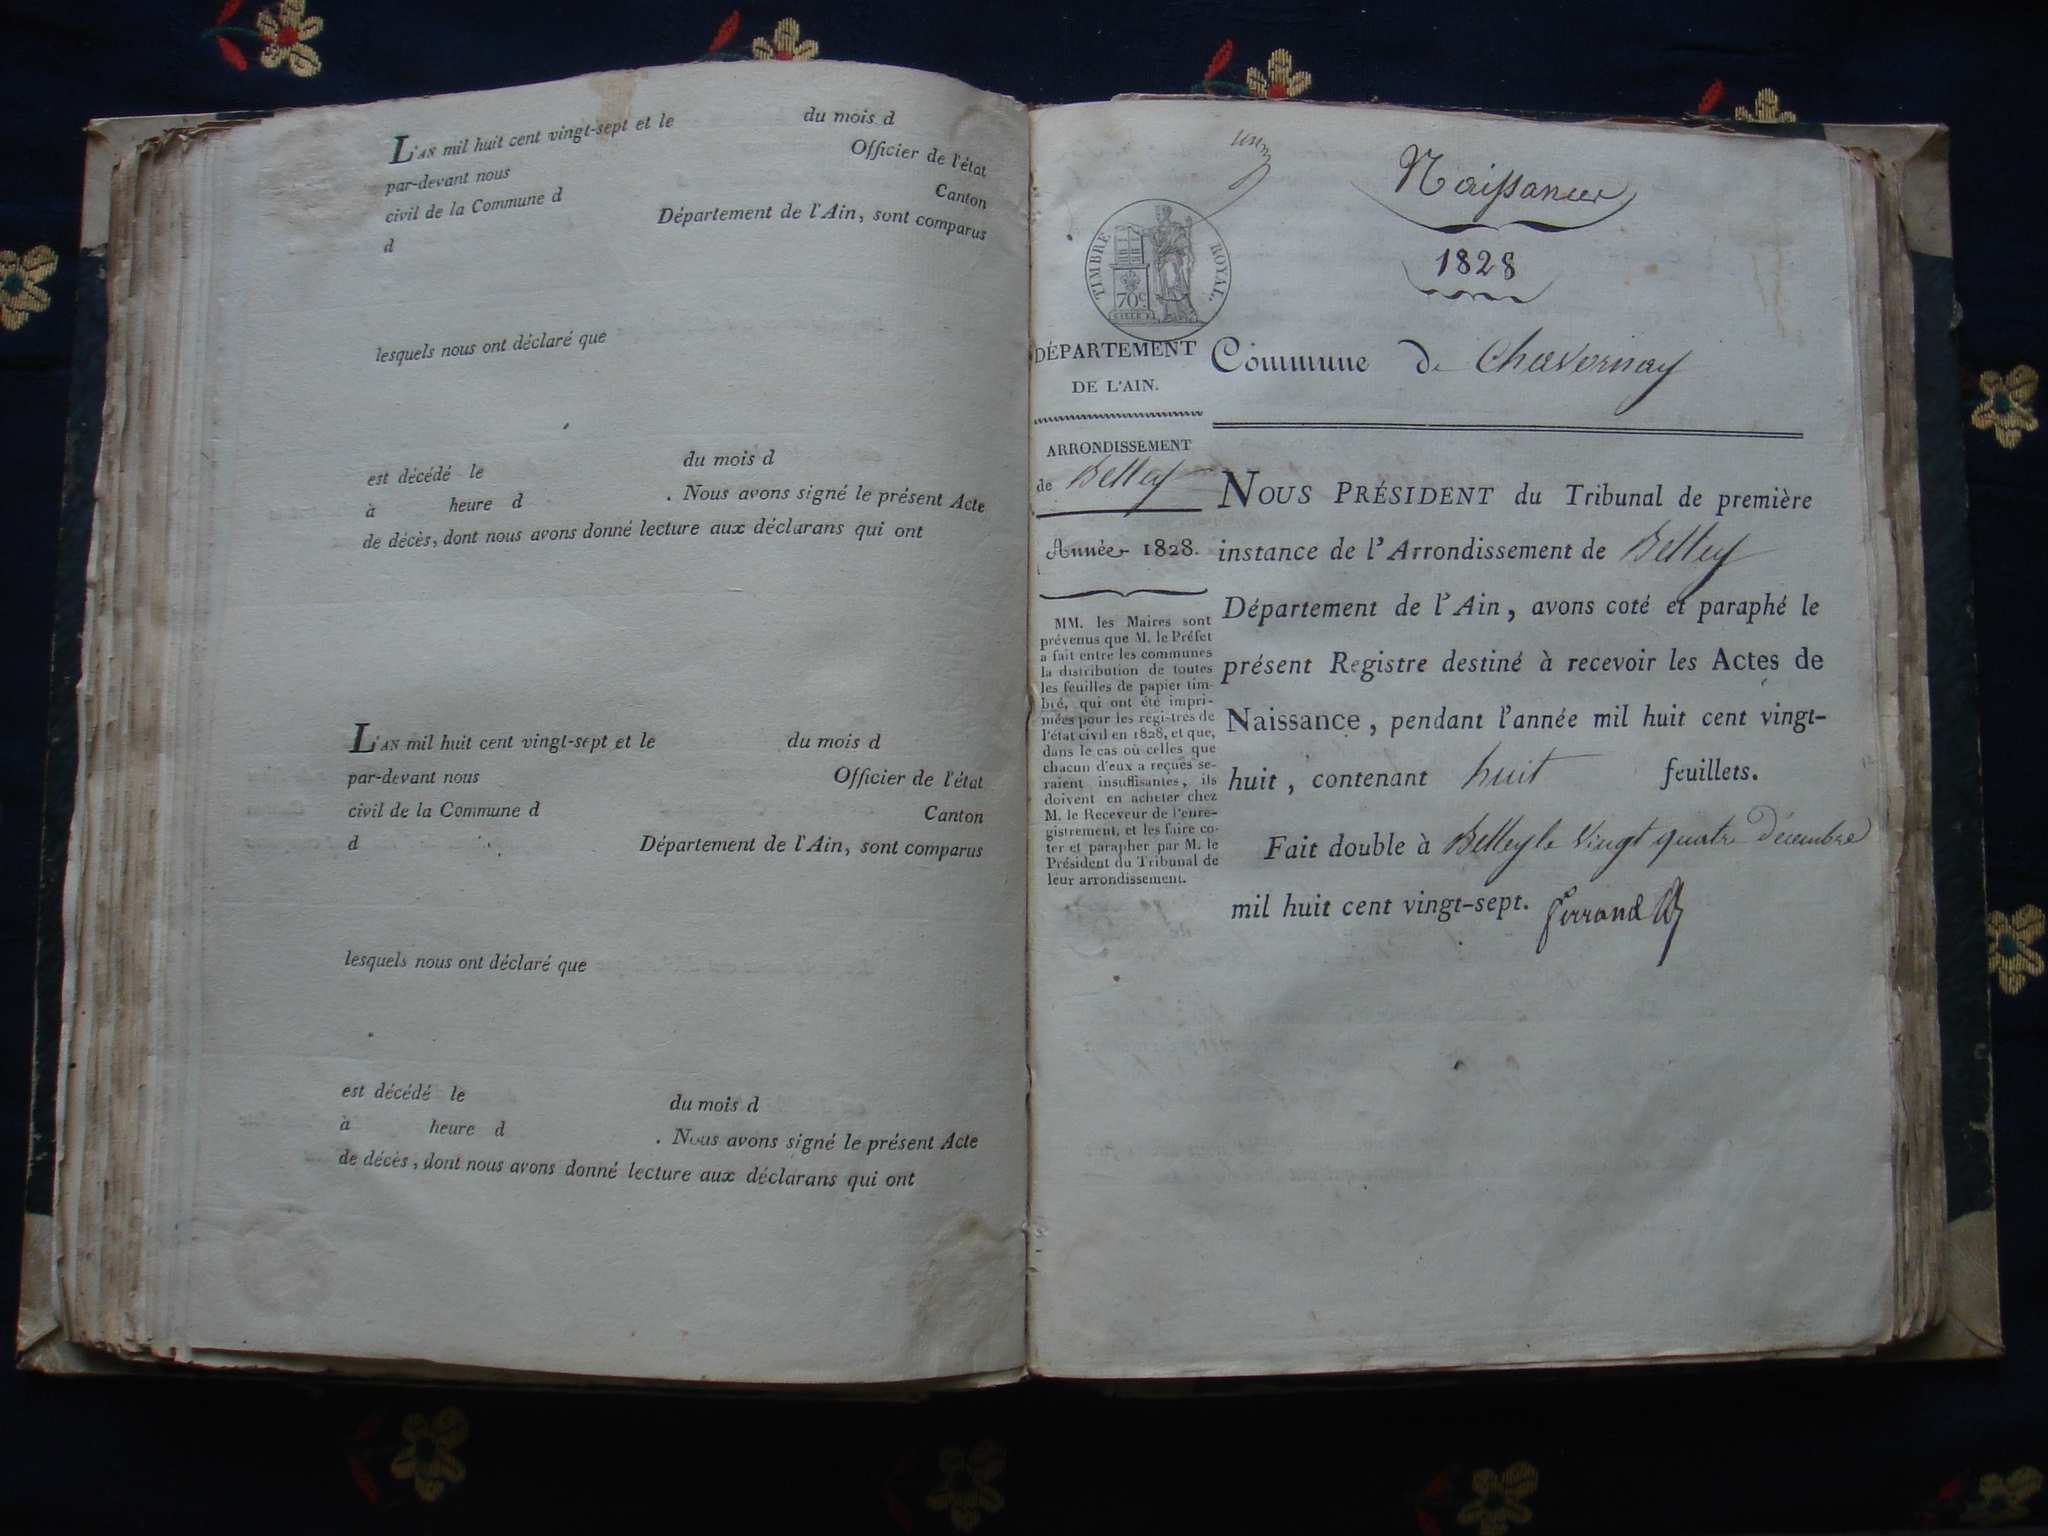 L'AN mil huit cent vingt-sept et le du mois d
par-devant nous Officier de l'état
civil de la Commune d Canton
d Département de l'Ain, sont comparus
lesquels nous ont déclaré que
est décédé le du mois d
à heure d . Nous avons signé le présent Acte
de décès, dont nous avons donné lecture aux déclarans qui ont
L'AN mil huit cent vingt-sept et le du mois d
par-devant nous Officier de l'état
civil de la Commune d Canton
d Département de l'Ain, sont comparus
lesquels nous ont déclaré que
est décédé le du mois d
à heure d . Nous avons signé le présent Acte
de décès, dont nous avons donné lecture aux déclarans qui ont
Naissances
1828
TIMBRE ROYAL
70c
DÉPARTEMENT
DE L'AIN.
Commune de Chavornay
ARRONDISSEMENT
de Belley
Année 1828.
MM. les Maires sont
prévenus que M. le Préfet
a fait entre les communes
la distribution de toutes
les feuilles de papier tim-
bré, qui ont été impri-
mées pour les registres de
l'état civil en 1828, et que,
dans le cas où celles que
chacun d'eux a reçues se-
raient insuffisantes, ils
doivent en acheter chez
M. le Receveur de l'enre-
gistrement, et les faire co-
ter et parapher par M. le
Président du Tribunal de
leur arrondissement.
NOUS PRÉSIDENT du Tribunal de première
instance de l'Arrondissement de Belley
Département de l'Ain, avons coté et paraphé le
présent Registre destiné à recevoir les Actes de
Naissance, pendant l'année mil huit cent vingt-
huit, contenant huit feuillets.
Fait double à Belley le vingt quatre Décembre
mil huit cent vingt-sept.